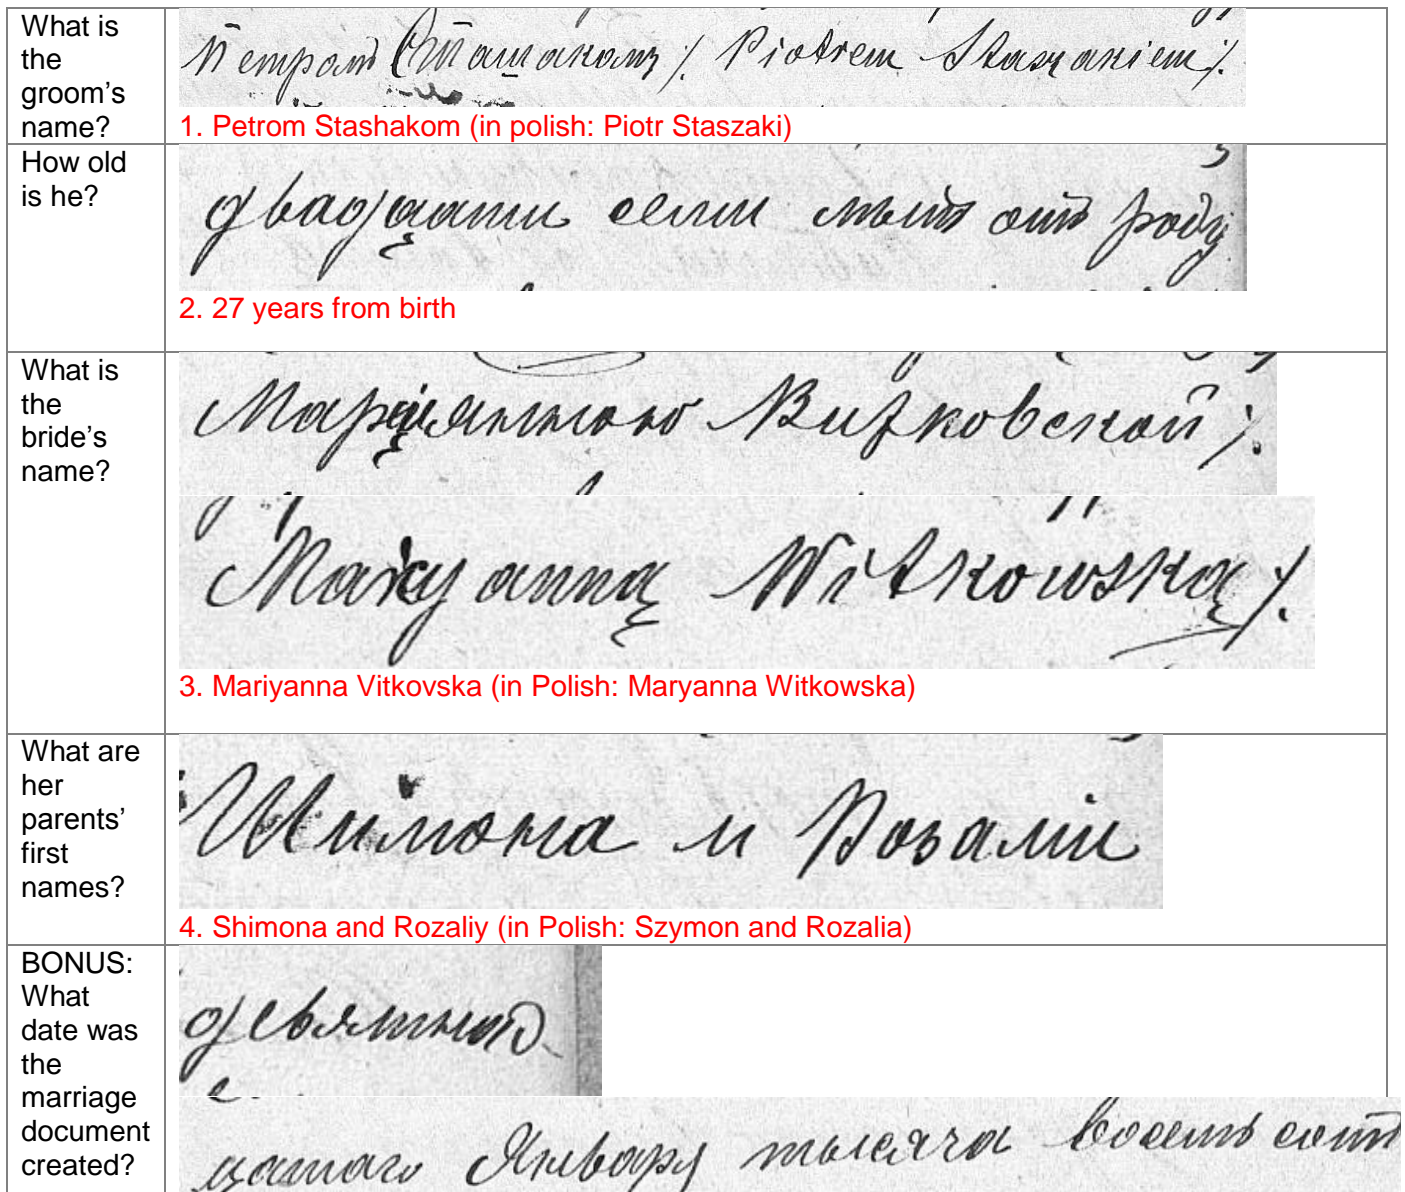 What is
the
groom's
name?
Петромъ Сташакомъ /. Piotrem Staszakiem /.
1. Petrom Stashakom (in polish: Piotr Staszaki)
How old
is he?
двадцати семи лѣтъ отъ роду
2. 27 years from birth
What is
the
bride's
name?
Марціянною Витковской /.
Maryanną Witkowską /.
3. Mariyanna Vitkovska (in Polish: Maryanna Witkowska)
What are
her
parents'
first
names?
Шимона и Розаліи
4. Shimona and Rozaliy (in Polish: Szymon and Rozalia)
BONUS:
What
date was
the
marriage
document
created?
девятнад-
цатаго Январу тысяча восемь сотъ